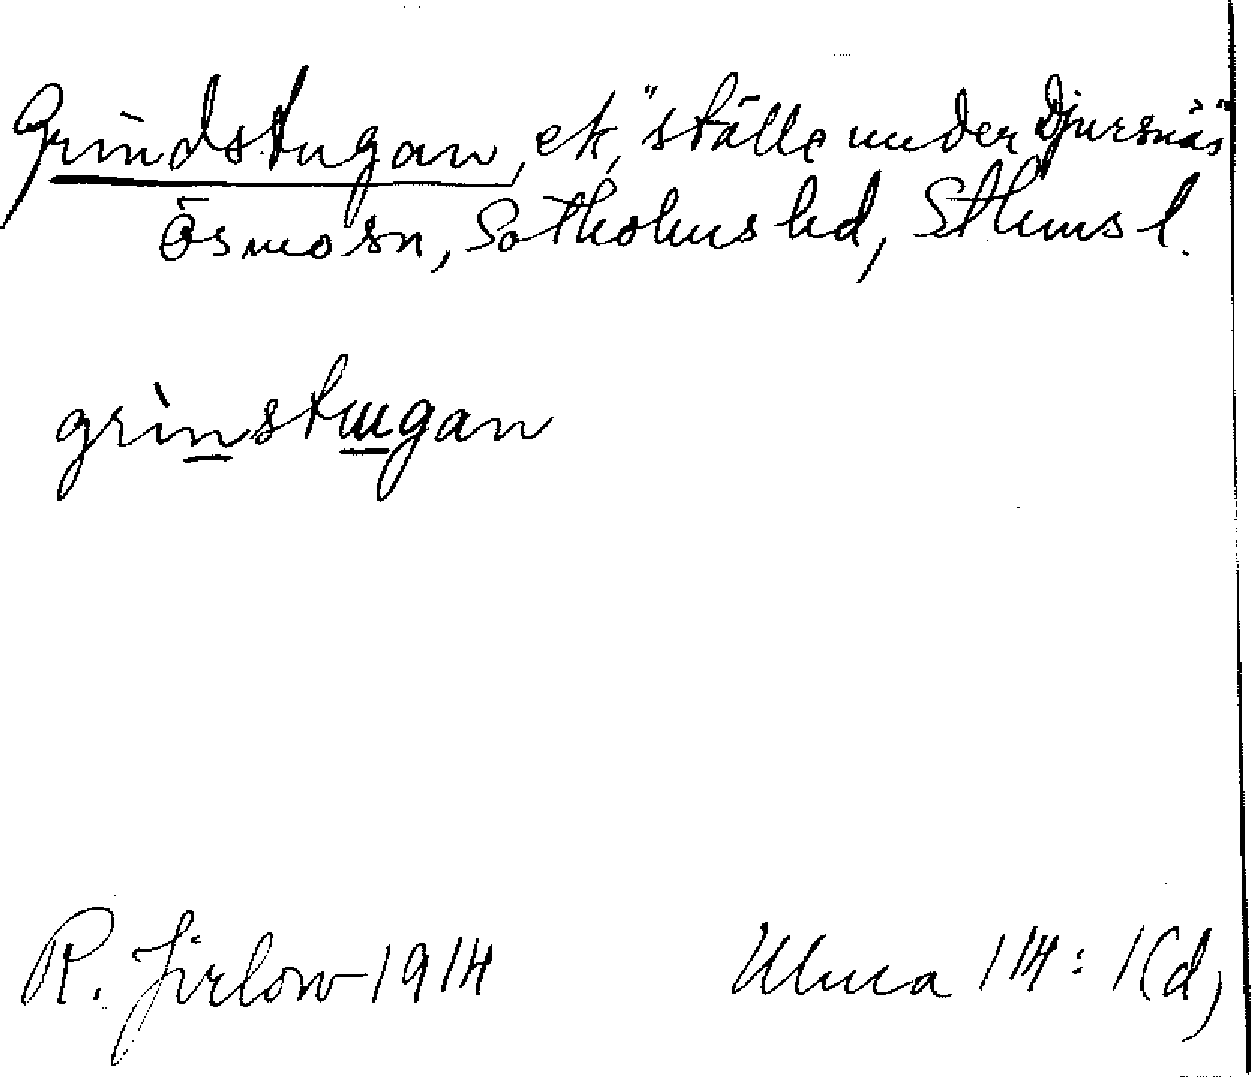 Grindstugan, ek, "ställe under Djursnäs"
Ösmo sn, Sotholms hd, Sthms l.
grìnstugan
R. Jirlow 1914
Ulma 114: 1(d)